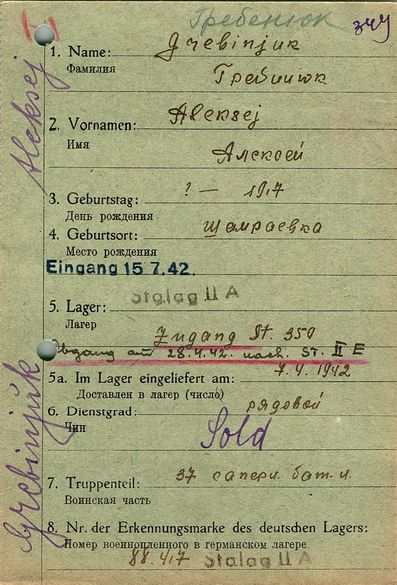 Гребенюк 349
1. Name: Grebinjuk
Фамилия Гребинюк
2. Vornamen: Aleksej
Имя Алексей
3. Geburtstag: ? — 1917
День рождения
4. Geburtsort: Шамраевка
Место рождения
Eingang 15.7.42.
5. Lager: Stalag II A
Лагерь
Zugang St. 350
Abgang am 28.4.42 nach ST. II E
5a. Im Lager eingeliefert am: 7.4.1942
Доставлен в лагер (число)
6. Dienstgrad: рядовой
Чин Sold
7. Truppenteil: 37 саперн. бат-н.
Воинская часть
8. Nr. der Erkennungsmarke des deutschen Lagers:
Номер военнопленного в германском лагере
88.417 Stalag II A
Grebinjuk Aleksej